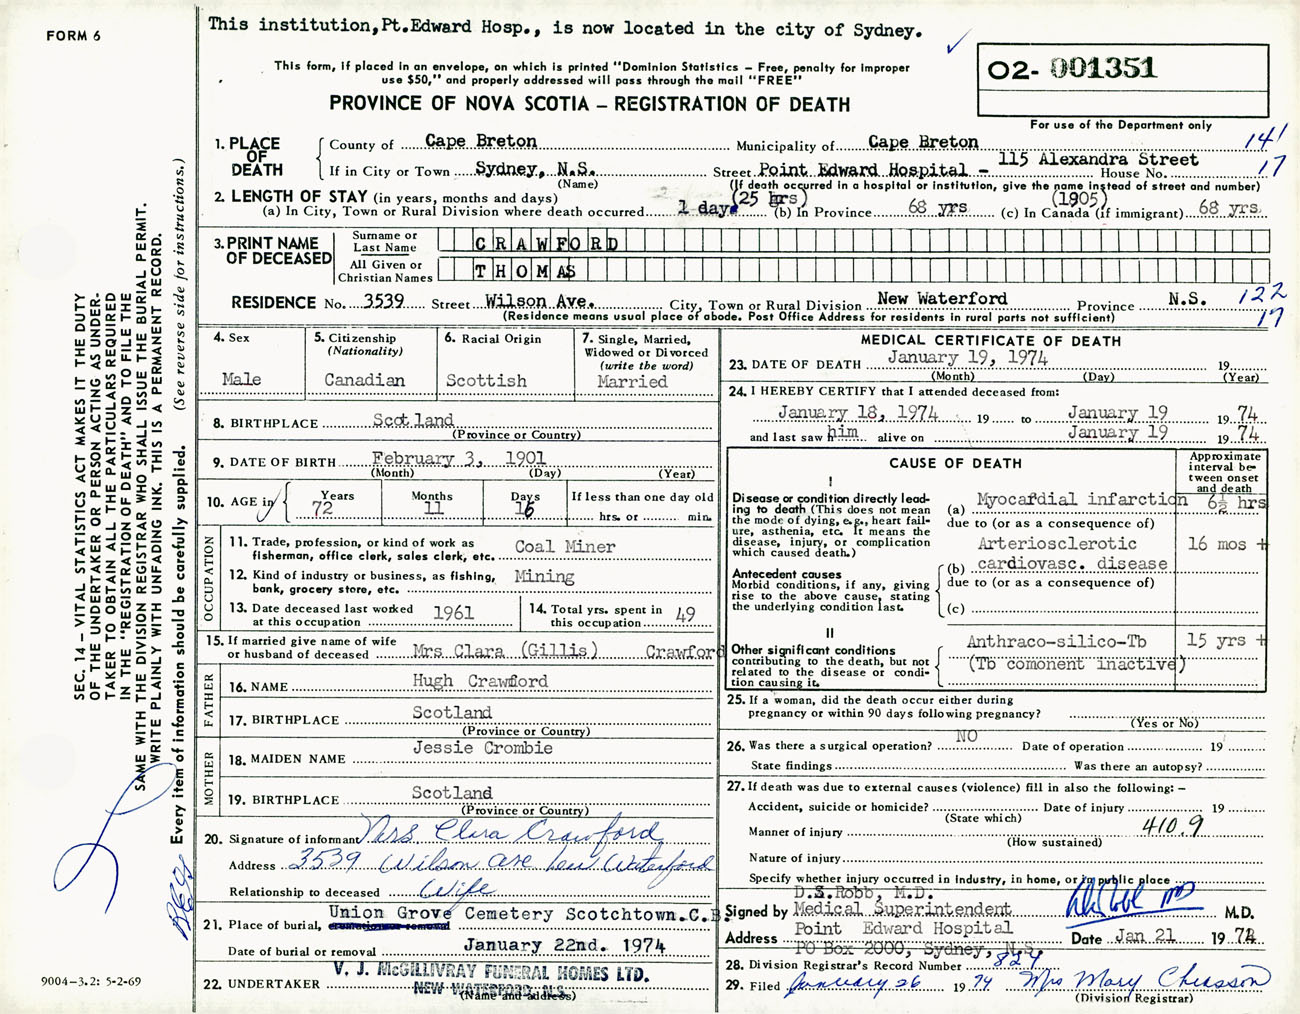 FORM 6
This institution,Pt.Edward Hosp., is now located in the city of Sydney.
This form, if placed in an envelope, on which is printed "Dominion Statistics – Free, penalty for improper
use $50," and properly addressed will pass through the mail "FREE"
PROVINCE OF NOVA SCOTIA – REGISTRATION OF DEATH
O2- 001351
For use of the Department only
1. PLACE OF DEATH
County of Cape Breton Municipality of Cape Breton 141
If in City or Town Sydney, N.S. Street Point Edward Hospital - 115 Alexandra Street House No. 17
(Name) (If death occurred in a hospital or institution, give the name instead of street and number)
2. LENGTH OF STAY (in years, months and days) (25 hrs) (1905)
(a) In City, Town or Rural Division where death occurred 1 day (b) In Province 68 yrs (c) In Canada (if immigrant) 68 yrs
3. PRINT NAME OF DECEASED
Surname or Last Name CRAWFORD
All Given or Christian Names THOMAS
RESIDENCE No. 3539 Street Wilson Ave. City, Town or Rural Division New Waterford Province N.S. 122
(Residence means usual place of abode. Post Office Address for residents in rural parts not sufficient) 17
4. Sex
Male
5. Citizenship
(Nationality)
Canadian
6. Racial Origin
Scottish
7. Single, Married,
Widowed or Divorced
(write the word)
Married
8. BIRTHPLACE Scotland
(Province or Country)
9. DATE OF BIRTH February 3, 1901
(Month) (Day) (Year)
10. AGE in Years Months Days If less than one day old
72 11 16 hrs. or min.
OCCUPATION
11. Trade, profession, or kind of work as Coal Miner
fisherman, office clerk, sales clerk, etc.
12. Kind of industry or business, as fishing, Mining
bank, grocery store, etc.
13. Date deceased last worked 1961
at this occupation
14. Total yrs. spent in 49
this occupation
15. If married give name of wife
or husband of deceased Mrs Clara (Gillis) Crawford
FATHER
16. NAME Hugh Crawford
17. BIRTHPLACE Scotland
(Province or Country)
MOTHER
18. MAIDEN NAME Jessie Crombie
19. BIRTHPLACE Scotland
(Province or Country)
20. Signature of informant Mrs Clara Crawford
Address 3539 Wilson Ave New Waterford
Relationship to deceased Wife
21. Place of burial, Union Grove Cemetery Scotchtown.C.B.
Date of burial or removal January 22nd. 1974
22. UNDERTAKER V. J. McGILLIVRAY FUNERAL HOMES LTD.
NEW WATERFORD, N.S.
(Name and address)
MEDICAL CERTIFICATE OF DEATH
23. DATE OF DEATH January 19, 1974 19
(Month) (Day) (Year)
24. I HEREBY CERTIFY that I attended deceased from:
January 18, 1974 19 to January 19 19 74
and last saw him alive on January 19 19 74
CAUSE OF DEATH
Approximate
interval be-
tween onset
and death
I
Disease or condition directly lead-
ing to death (This does not mean
the mode of dying, e.g., heart fail-
ure, asthenia, etc. It means the
disease, injury, or complication
which caused death.)
(a) Myocardial infarction 6½ hrs
due to (or as a consequence of)
Antecedent causes
Morbid conditions, if any, giving
rise to the above cause, stating
the underlying condition last.
Arteriosclerotic 16 mos +
(b) cardiovasc. disease
due to (or as a consequence of)
(c)
II
Other significant conditions
contributing to the death, but not
related to the disease or condi-
tion causing it.
Anthraco-silico-Tb 15 yrs +
(Tb comonent inactive)
25. If a woman, did the death occur either during
pregnancy or within 90 days following pregnancy?
(Yes or No)
26. Was there a surgical operation? NO Date of operation 19
State findings Was there an autopsy?
27. If death was due to external causes (violence) fill in also the following: –
Accident, suicide or homicide? Date of injury 19
(State which)
Manner of injury 410.9
(How sustained)
Nature of injury
Specify whether injury occurred in industry, in home, or in public place
D.S.Robb, M.D.
Signed by Medical Superintendent M.D.
Point Edward Hospital
Address PO Box 2000, Sydney, N.S. Date Jan 21 19 74
28. Division Registrar's Record Number 824
29. Filed January 26 19 74 Mrs Mary Chiasson
(Division Registrar)
SEC. 14 – VITAL STATISTICS ACT MAKES IT THE DUTY
OF THE UNDERTAKER OR PERSON ACTING AS UNDER-
TAKER TO OBTAIN ALL THE PARTICULARS REQUIRED
IN THE "REGISTRATION OF DEATH" AND TO FILE THE
SAME WITH THE DIVISION REGISTRAR WHO SHALL ISSUE THE BURIAL PERMIT.
WRITE PLAINLY WITH UNFADING INK. THIS IS A PERMANENT RECORD.
Every item of information should be carefully supplied. (See reverse side for instructions.)
9004–3.2: 5-2-69